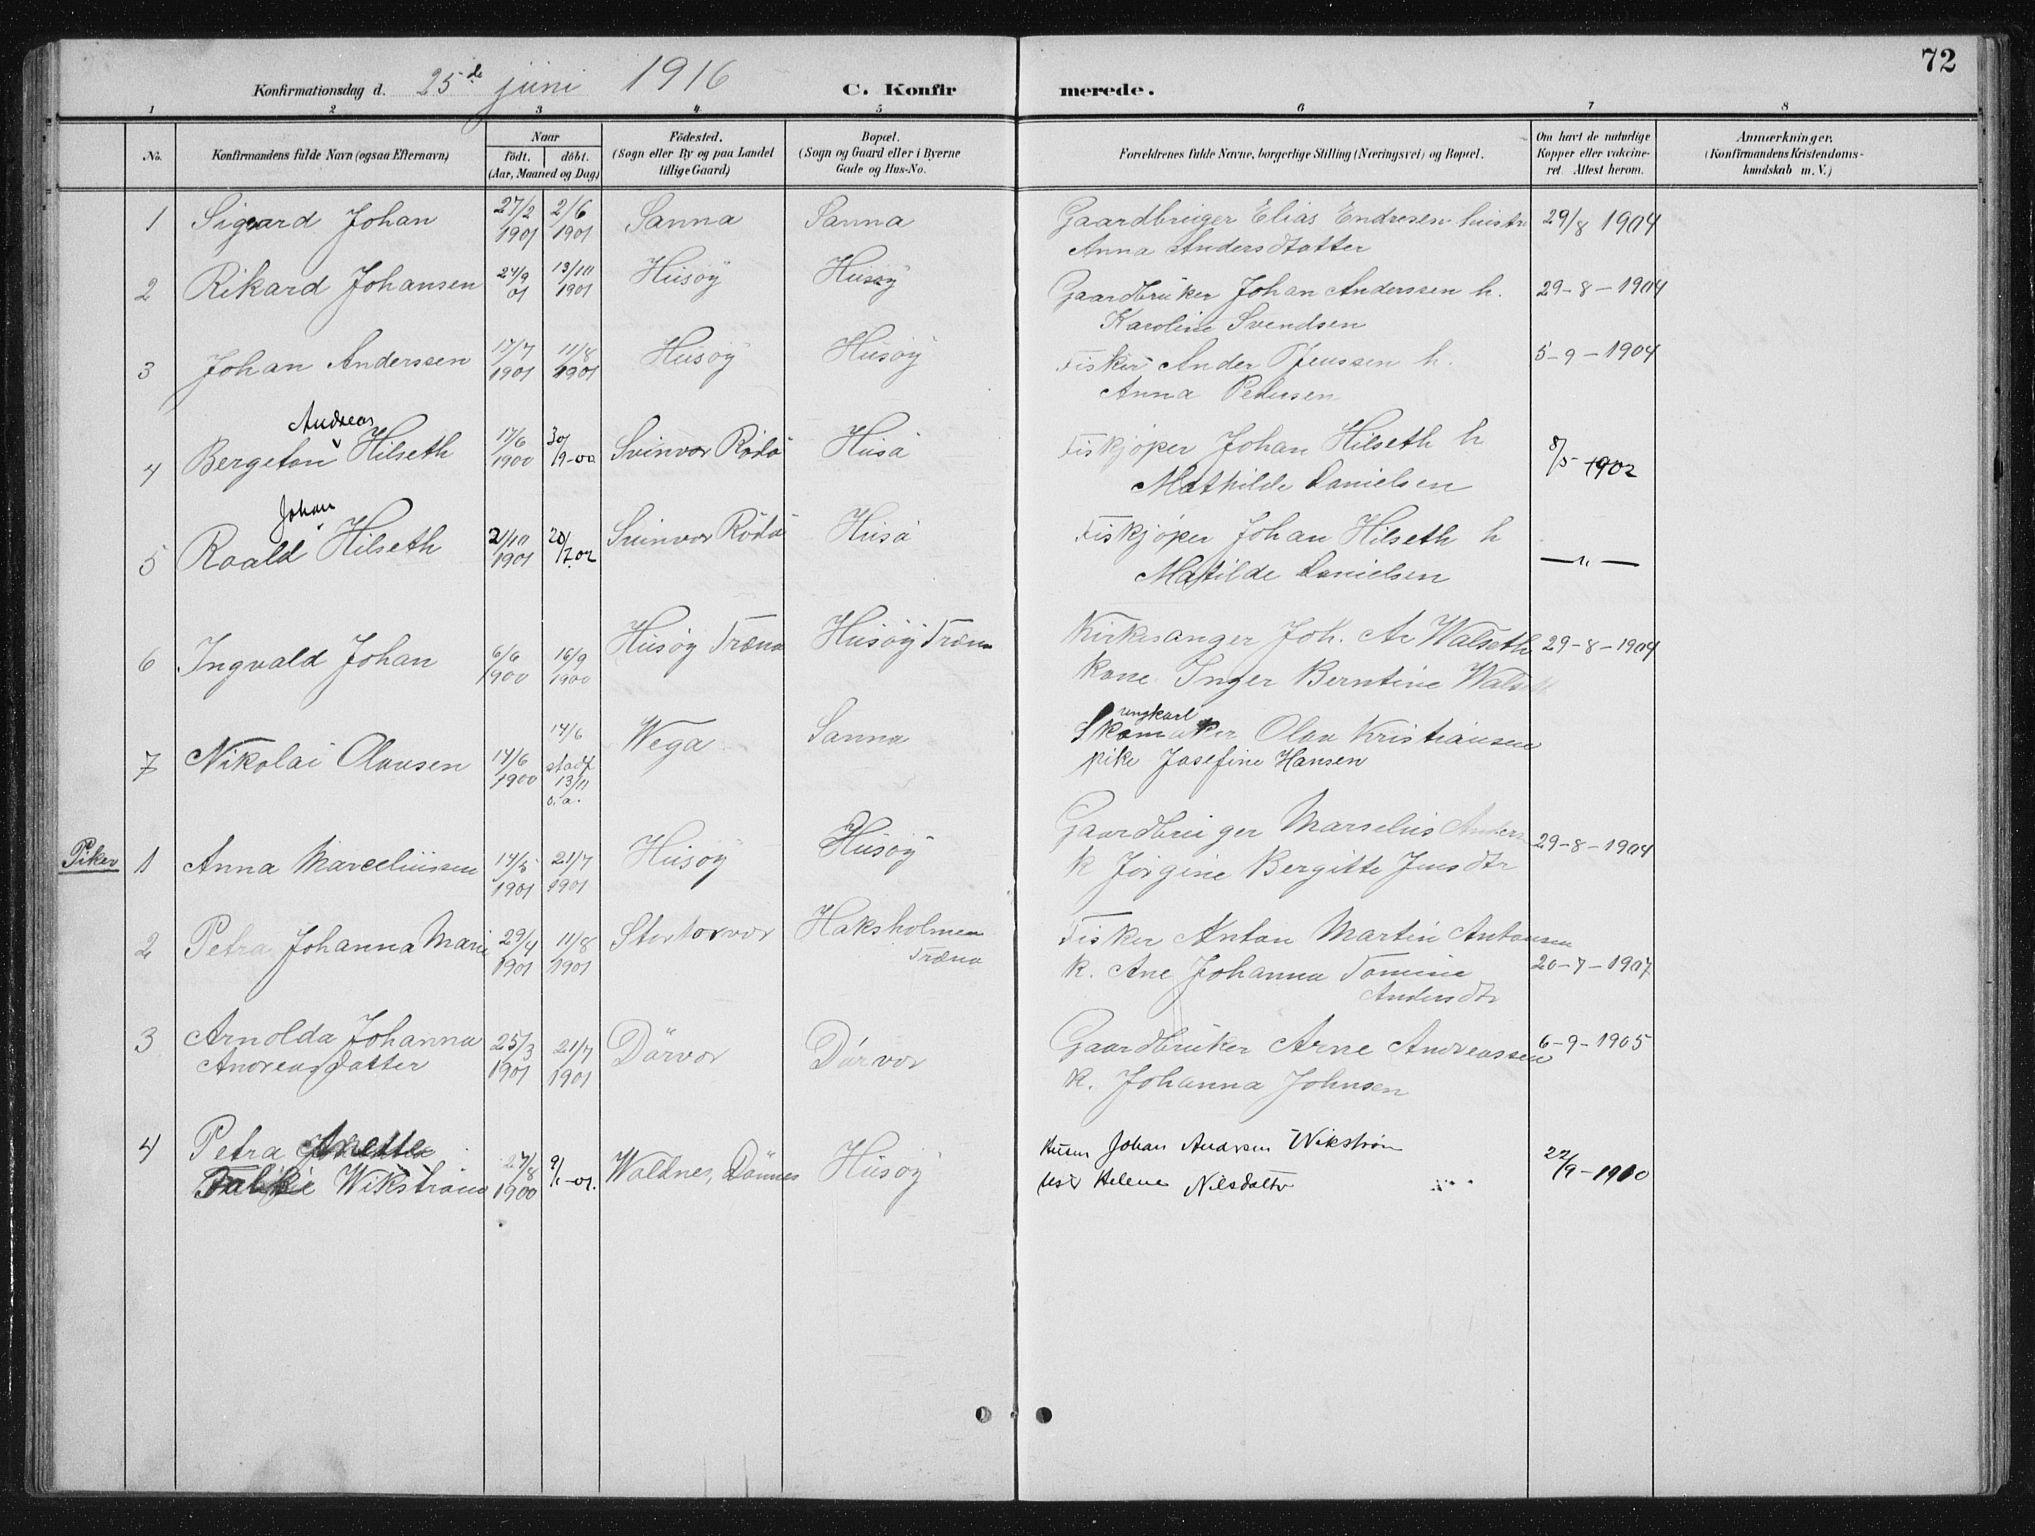 72
Konfirmationsdag d. 25de juni 1916 C. Konfirmerede.
1 2 3 4 5 6 7 8
No. Konfirmandens fulde Navn (ogsaa Efternavn) Naar födt. döbt. (Aar, Maaned og Dag) Födested. (Sogn eller By og paa Landet tillige Gaard) Bopæl. (Sogn og Gaard eller i Byerne Gade og Hus-No. Forældrenes fulde Navne, borgerlige Stilling (Næringsvei) og Bopæl. Om havt de naturlige Kopper eller vakcineret. Attest herom. Anmærkninger. (Konfirmandens Kristendomskundskab m. V.)
1 Sigvard Johan 27/2 1901 2/6 1901 Sanna Sanna Gaardbruger Elias Endresen hustr 29/8 1904
Anna Andersdatter
2 Rikard Johansen 24/9 01 13/10 1901 Husöy Husøy Gaardbruker Johan Anderssen h. 29-8-1904
Karoline Svendsen
3 Johan Anderssen 17/7 1901 11/8 1901 Husöy Husöy Fisker Ander Jenssen h. 5-9-1904
Anna Pedersen
Andreas
4 Bergeton Hilseth 17/6 1900 30/9-00 Svinvær Rödö Husö Fiskjøper Johan Hilseth h 8/5 1902
Mathilde Danielsen
Johan
5 Roald Hilseth 21/10 1901 20/7.02 Svinvær Rödö Husö Fiskjøper Johan Hilseth h —"—
Matilde Danielsen
6 Ingvald Johan 6/6 1900 16/9 1900 Husöy Træna Husöy Træna Kirkesanger Joh. Ar Walseth 29-8-1904
kone Inger Berntine Walseth
7 Nikolai Olausen 14/6 1900 14/6 stadf 13/11 o.a. Wega Sanna ungkarl Skomaker Olau Kristiansen
pike Josefine Hansen
Piker
1 Anna Marceliussen 14/5 1901 21/7 1901 Husöy Husöy Gaardbruger Marselius Anders 29-8-1904
k Jørgine Bergitte Jensdtr
2 Petra Johanna Marie 29/4 1901 11/8 1901 Stortorvær Haksholmen Træna Fisker Anton Martin Antonsen
k. Ane Johanna Tomine Andersdtr 20-7-1907
3 Arnolda Johanna Andreasdatter 25/3 1901 21/7 1901 Dörvær Dörvær Gaardbruker Arne Andreassen 6-9-1905
k. Johanna Johnsen
4 Petra Anette Wikström 27/8 1900 Husöy Johan Andreas Wikström 22/9-1910
Helene Nilsdatter